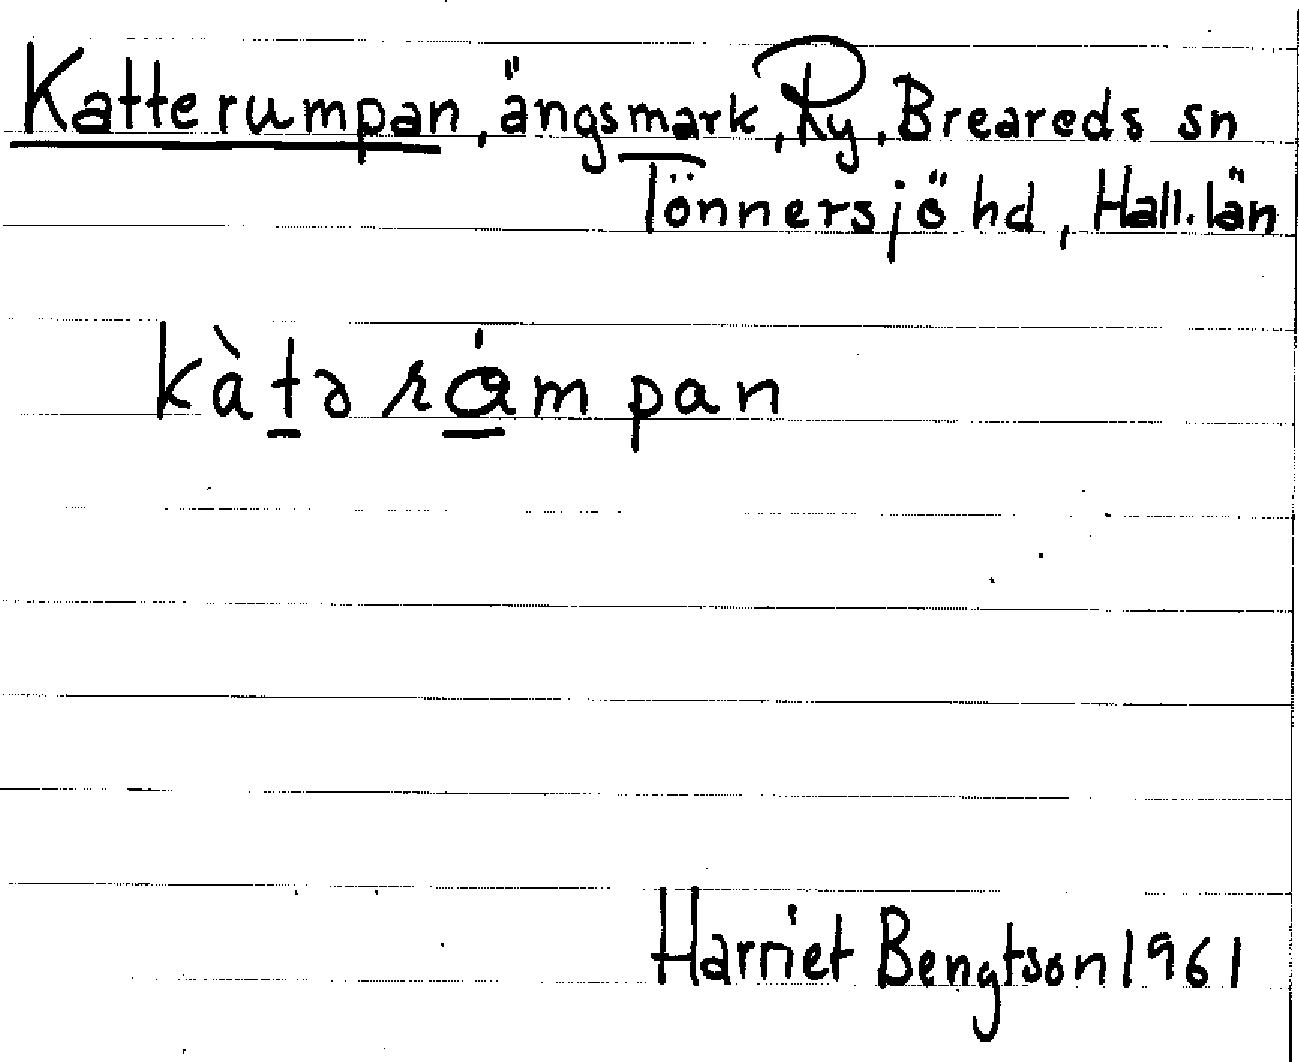 Katterumpan, ängsmark, Ry, Breareds sn
Tönnersjö hd, Hall. län
kàtə rám pan
Harriet Bengtson 1961